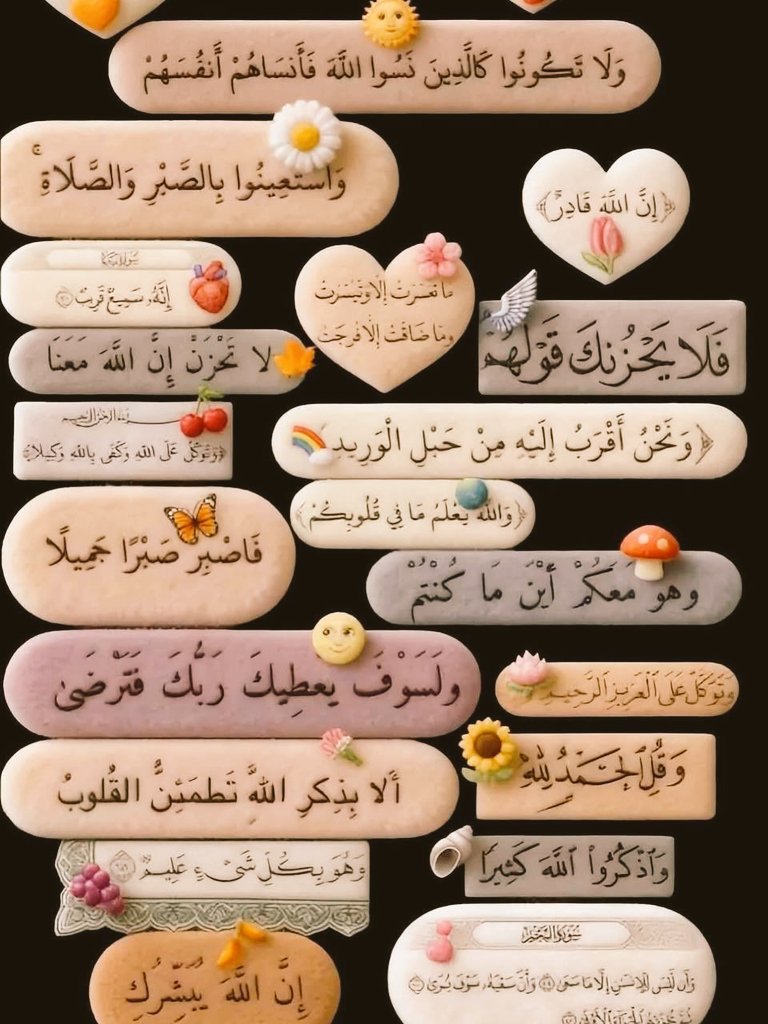 وَلَا تَكُونُوا كَالَّذِينَ نَسُوا اللَّهَ فَأَنسَاهُمْ أَنفُسَهُمْ
وَاسْتَعِينُوا بِالصَّبْرِ وَالصَّلَاةِ ۚ
﴿إِنَّ اللَّهَ قَادِرٌ﴾
إِنَّهُ سَمِيعٌ قَرِيبٌ
مَا تَعَسَّرَتْ إِلَّا وَتَيَسَّرَتْ
وَمَا ضَاقَتْ إِلَّا فُرِجَتْ
فَلَا يَحْزُنكَ قَوْلُهُمْ
لا تَحْزَنْ إِنَّ اللَّهَ مَعَنَا
بسم الله الرحمن الرحيم
﴿وَتَوَكَّلْ عَلَى اللَّهِ وَكَفَى بِاللَّهِ وَكِيلًا﴾
﴿وَنَحْنُ أَقْرَبُ إِلَيْهِ مِنْ حَبْلِ الْوَرِيدِ
﴿وَاللَّهُ يَعْلَمُ مَا فِي قُلُوبِكُمْ﴾
فَاصْبِرْ صَبْرًا جَمِيلًا
وهو مَعَكُمْ أَيْنَ مَا كُنْتُمْ
ولَسَوْفَ يعطِيكَ رَبُّكَ فَتَرْضَىٰ
وَتَوَكَّلْ عَلَى الْعَزِيزِ الرَّحِيمِ
وَقُلِ الْحَمْدُ لِلَّهِ
أَلا بِذِكرِ اللَّهِ تَطمَئِنُّ القُلوبُ
وَهُوَ بِكُلِّ شَيْءٍ عَلِيمٌ
وَٱذْكُرُوا۟ ٱللَّهَ كَثِيرًا
إِنَّ اللَّهَ يُبَشِّرُكِ
سُورَةُ النَّجْمِ
وَأَن لَّيْسَ لِلْإِنسَٰنِ إِلَّا مَا سَعَىٰ ٣٩ وَأَنَّ سَعْيَهُۥ سَوْفَ يُرَىٰ ٤٠
ثُمَّ يُجْزَىٰهُ الْجَزَاءَ الْأَوْفَىٰ